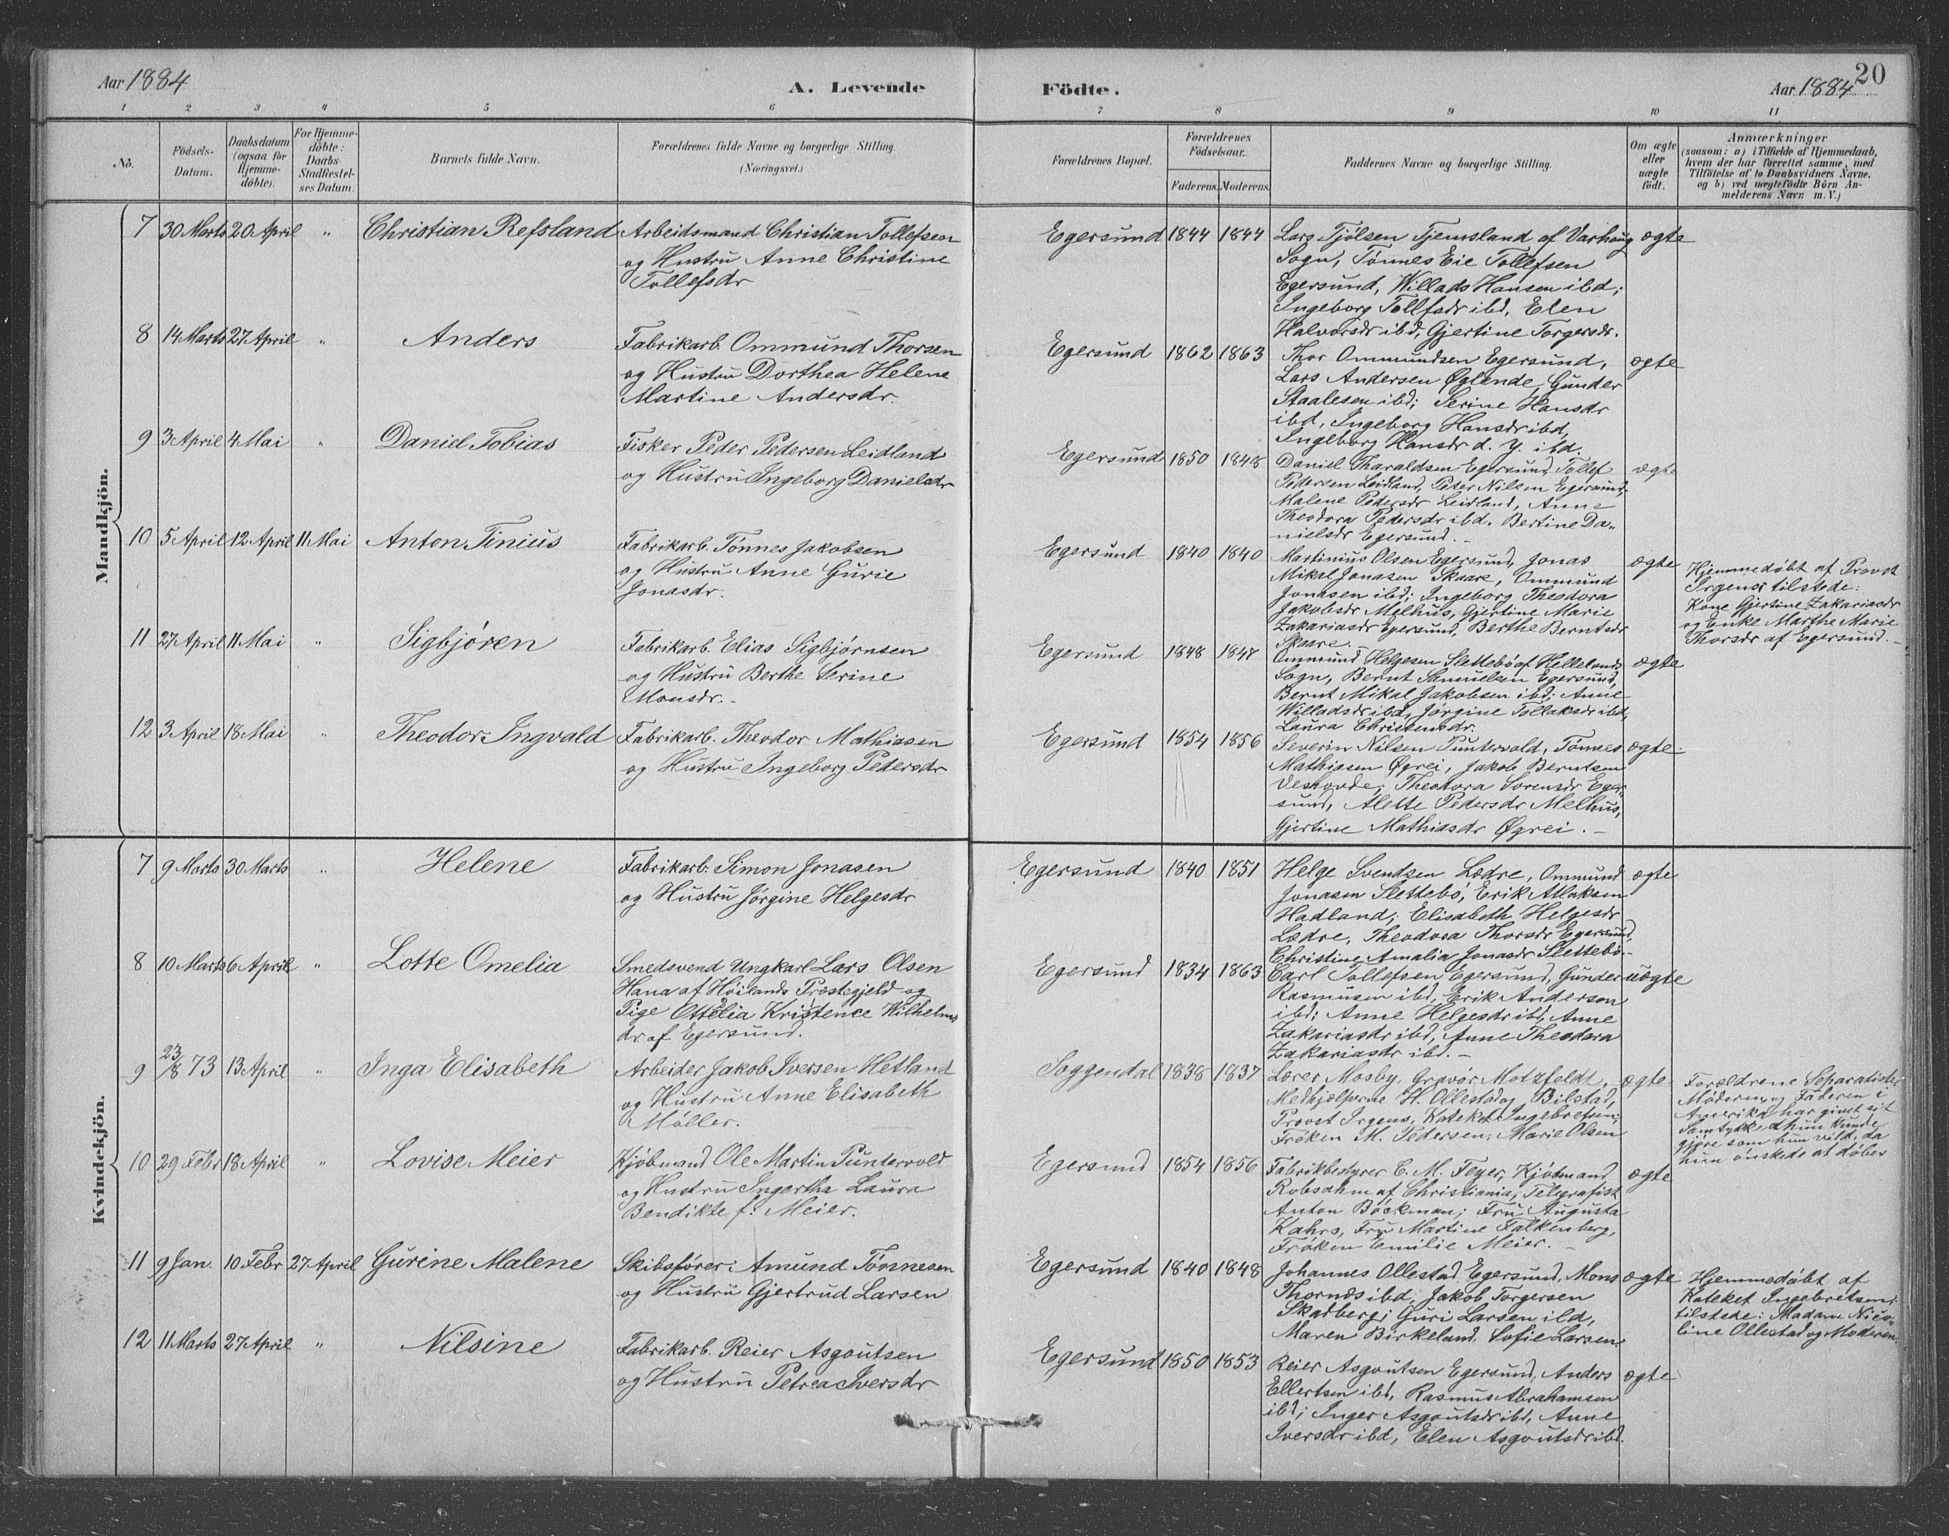 Aar 1884
A. Levende
Födte.
Aar 1884
20
1 2 3 4 5 6 7 8 9 10 11
No.
Födsels-
Datum.
Daabsdatum
(ogsaa för
Hjemme-
döbte).
For Hjemme-
döbte:
Daabs-
Stadfæstel-
ses Datum.
Barnets fulde Navn.
Forældrenes fulde Navne og borgerlige Stilling
(Næringsvei.)
Forældrenes Bopæl.
Forældrenes
Födselsaar.
Faderens. Moderens.
Faddernes Navne og borgerlige Stilling.
Om ægte
eller
uægte
födt.
Anmærkninger
(saasom: a) i Tilfælde af Hjemmedaab,
hvem der har forrettet samme, med
Tilföielse af to Daabsvidners Navne,
og b) ved uægtefödte Börn An-
melderens Navn m. V.)
Mandkjön.
7 30 Marts 20 April " Christian Refsland
Arbeidsmand Christian Tollefsen
og Hustru Anne Christine
Tollefsdr
Egersund 1844 1844
Lars Tjölsen Tjemsland af Varhaug
Sogn, Tønnes Eie Tollefsen
Egersund, Willads Hansen ibd;
Ingeborg Tollfsdr ibd, Elen
Halvorsdr ibd, Gjertine Torgersdr.
ægte
8 14 Marts 27 April " Anders
Fabrikarb. Ommund Thorsen
og Hustru Dorthea Helene
Martine Andersdr.
Egersund 1862 1863
Thor Ommundsen Egersund,
Lars Andersen Øglende, Gunder
Staalesen ibd; Serine Hansdr
ibd, Ingeborg Hansdr ibd,
Ingeborg Hansdr d. y. ibd.
ægte
9 3 April 4 Mai " Daniel Tobias
Fisker Peder Pedersen Leidland
og Hustru Ingeborg Danielsdr
Egersund 1850 1848
Daniel Tharaldsen Egersund, Tollef
Pedersen Leidland, Peter Nilsen Egersund;
Malene Pedersdr Leidland, Anne
Theodora Pedersdr ibd. Bertine Da-
nielsdr Egersund.
ægte
10 5 April 12 April 11 Mai Anton Tinius
Fabrikarb. Tønnes Jakobsen
og Hustru Anne Gurie
Jonasdr.
Egersund 1840 1840
Martinius Olsen Egersund, Jonas
Mikal Jonasen Skaare, Ommund
Jonasen ibd; Ingeborg Theodora
Jakobsdr Melhus, Gjertine Marie
Zakariasdr Egersund, Berthe Berntsdr
Skaare.
ægte
Hjemmedøbt af Provst
Irgens; tilstede:
Kone Gjertine Zakariasdr
og Enke Marthe Marie
Thorsdr af Egersund.
11 27 April 11 Mai " Sigbjøren
Fabrikarb. Elias Sigbjørnsen
og Hustru Berthe Serine
Monsdr.
Egersund 1848 1847
Ommund Helgesen Slettebø af Hellelands
Sogn, Bernt Samuelsen Egersund,
Bernt Mikal Jakobsen ibd; Anne
Willadsdr ibd, Jørgine Tollaksdr ibd,
Laura Christensdr.
ægte
12 3 April 18 Mai " Theodor Ingvald
Fabrikarb. Theodor Mathiasen
og Hustru Ingeborg Pedersdr
Egersund 1854 1856
Severin Nilsen Puntervold, Tønnes
Mathiasen Øgrei, Jakob Berntsen
Veshovde; Theodora Sorensdr Eger-
sund, Alette Pedersdr Melhus,
Gjertine Mathiasdr Øgrei.
ægte
Kvindekjön.
7 9 Marts 30 Marts " Helene
Fabrikarb. Simon Jonasen
og Hustru Jørgine Helgesdr
Egersund 1840 1851
Helge Svendsen Lædre, Ommund
Jonasen Slettebø, Erik Atlaksen
Hadland; Elisabeth Helgesdr
Lædre, Theodora Thorsdr Egersund,
Christine Amalia Jonasdr Slettebø.
ægte
8 10 Marts 6 April " Lotte Omelia
Smedsvend Ungkarl Lars Olsen
Hana af Høilands Præstegjeld og
Pige Ottelia Kristence Wilhelms
dr af Egersund.
Egersund 1834 1863
Carl Tollefsen Egersund, Gunder
Rasmusen ibd, Erik Anderson
ibd; Anne Helgesdr ibd, Anne
Zakariasdr ibd, Anne Theodora
Zakariasdr ibd.
uægte
9 23/8 73 13 April " Inga Elisabeth
Arbeider Jakob Iversen Hetland
og Hustru Anne Elisabeth
Møller.
Soggendal 1838 1837
Lærer Mosby, Gravør Motzfeldt,
Medhjælperne H. Ollestad og Bilstad,
Provst Irgens, Kateket Ingebretsen;
Frøken M. Pedersen, Marie Olsen
ægte
Forældrene Separatister
Moderen, og Faderen i
Amerika har givet sit
Samtykke at hun kunde
gjøre som hun vild, da
hun ønskede at døbes
10 29 Febr 18 April " Lovise Meier
Kjøbmand Ole Martin Puntervold
og Hustru Ingertha Laura
Bendikte f: Meier.
Egersund 1854 1856
Fabrikbestyrer C. M. Feyer, Kjøbmand
Robsahm af Christiania, Telegrafist
Anton Bøckman; Fru Augusta
Kahrs, Fru Martine Falkenberg,
Frøken Emilie Meier.
ægte
11 9 Jan. 10 Febr 27 April Gurine Malene
Skibsfører: Amund Tønnesen
og Hustru Gjertrud Larsen
Egersund 1840 1848
Johannes Ollestad Egersund, Mons
Thornæs ibd, Jakob Torgersen
Skadberg; Guri Larsen ibd,
Maren Birkeland, Sofie Larsen
ægte
Hjemmedøbt af
Kateket Ingebretsen;
tilstede: Madam Nico-
line Ollestad og Moderen
12 11 Marts 27 April " Nilsine
Fabrikarb. Reier Asgoutsen
og Hustru Petrea Iversdr
Egersund 1850 1853
Reier Asgoutsen Egersund, Anders
Ellertsen ibd, Rasmus Abrahamsen
ibd; Inger Asgoutsdr ibd, Anne
Iversdr ibd, Elen Asgoutsdr ibd.
ægte